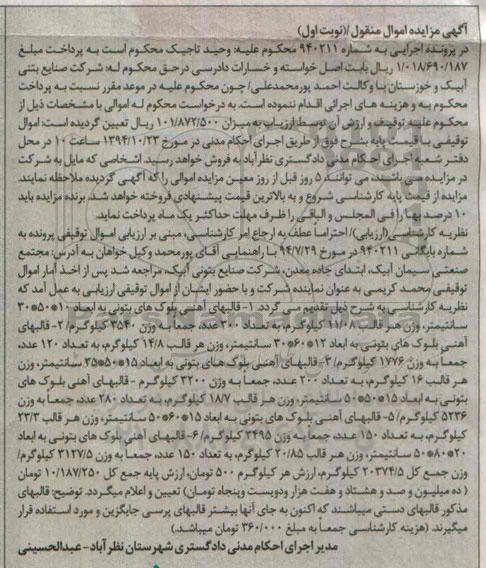 آگهی مزایده اموال منقول /(نوبت اول)
در پرونده اجرایی به شماره ۹۴۰۲۱۱ محکوم علیه: وحید تاجیک محکوم است به پرداخت مبلغ
۱/۰۱۸/۶۹۰/۱۸۷ ریال بابت اصل خواسته و خسارات دادرسی درحق محکوم له: شرکت صنایع بتنی
آبیک و خوزستان با وکالت احمد پورمحمدعلی/ چون محکوم علیه در موعد مقرر نسبت به پرداخت
محکوم به و هزینه های اجرائی اقدام ننموده است. به درخواست محکوم له اموالی با مشخصات ذیل از
محکوم علیه توقیف و ارزش آن توسط ارزیاب به میزان ۱۰۱/۸۷۲/۵۰۰ ریال تعیین گردیده است: اموال
توقیفی با قیمت پایه بشرح فوق از طریق اجرای احکام مدنی در مورخ ۱۳۹۴/۱۰/۲۳ ساعت ۱۰ در محل
دفتر شعبه اجرای احکام مدنی دادگستری نظرآباد به فروش خواهد رسید. اشخاصی که مایل به شرکت
در مزایده می باشند، می توانند ۵ روز قبل از روز معین مزایده اموالی را که آگهی گردیده ملاحظه نمایند.
مزایده از قیمت پایه کارشناسی شروع و به بالاترین قیمت پیشنهادی فروخته خواهد شد. برنده مزایده باید
۱۰ درصد بها را فی المجلس و الباقی را ظرف مهلت حداکثر یک ماه پرداخت نماید.
نظریه کارشناسی (ارزیابی)/ احتراماً عطف به ارجاع امر کارشناسی، مبنی بر ارزیابی اموال توقیفی پرونده به
شماره بایگانی ۹۴۰۲۱۱ در مورخ ۹۴/۷/۲۹ با راهنمایی آقای پورمحمد وکیل خواهان به آدرس: مجتمع
صنعتی سیمان آبیک، ابتدای جاده معدن، شرکت صنایع بتونی آبیک، مراجعه شد پس از اخذ آمار اموال
توقیفی محمد کریمی به عنوان نماینده شرکت و با حضور ایشان از اموال توقیفی ارزیابی به عمل آمد که
نظریه کارشناسی به شرح ذیل تقدیم می گردد. ۱- قالبهای آهنی بلوک های بتونی به ابعاد ۱۰*۵۰*۳۰
سانتیمتر، وزن هر قالب ۱۱/۰۸ کیلوگرم، به تعداد ۳۰۰ عدد، جمعاً به وزن ۳۵۴۰ کیلوگرم/ ۲- قالبهای
آهنی بلوک های بتونی به ابعاد ۱۲*۶۰*۳۰ سانتیمتر، وزن هر قالب ۱۴/۸ کیلوگرم، به تعداد ۱۲۰ عدد،
جمعاً به وزن ۱۷۷۶ کیلوگرم/ ۳- قالبهای آهنی بلوک های بتونی به ابعاد ۱۵*۵۰*۳۵ سانتیمتر، وزن
هر قالب ۱۶ کیلوگرم، به تعداد ۲۰۰ عدد، جمعا به وزن ۳۲۰۰ کیلوگرم - قالبهای آهنی بلوک های
بتونی به ابعاد ۱۵*۵۰*۵۰ سانتیمتر، وزن هر قالب ۱۸/۷ کیلوگرم، به تعداد ۲۸۰ عدد، جمعاً به وزن
۵۲۳۶ کیلوگرم/ ۵- قالبهای آهنی بلوک های بتونی به ابعاد ۱۵*۶۰*۵۰ سانتیمتر، وزن هر قالب ۲۳/۳
کیلوگرم، به تعداد ۱۵۰ عدد، جمعاً به وزن ۳۴۹۵ کیلوگرم/ ۶- قالبهای آهنی بلوک های بتونی به ابعاد
۲۰*۸۰*۵۰ سانتیمتر، وزن هر قالب ۲۰/۸۵ کیلوگرم، به تعداد ۱۵۰ عدد، جمعاً به وزن ۳۱۲۷/۵ کیلوگرم/
وزن جمع کل ۲۰۳۷۴/۵ کیلوگرم، ارزش هر کیلوگرم ۵۰۰ تومان، ارزش پایه جمع کل ۱۰/۱۸۷/۲۵۰ تومان
( ده میلیون و صد و هشتاد و هفت هزار ودویست وپنجاه تومان) تعیین و اعلام میگردد. توضیح: قالبهای
مذکور قالبهای دستی میباشند که اکنون به جای آنها بیشتر قالبهای پرسی جایگزین و مورد استفاده قرار
میگیرند. (هزینه کارشناسی جمعا به مبلغ ۳۶۰/۰۰۰ تومان میباشد.)
مدیر اجرای احکام مدنی دادگستری شهرستان نظرآباد- عبدالحسینی